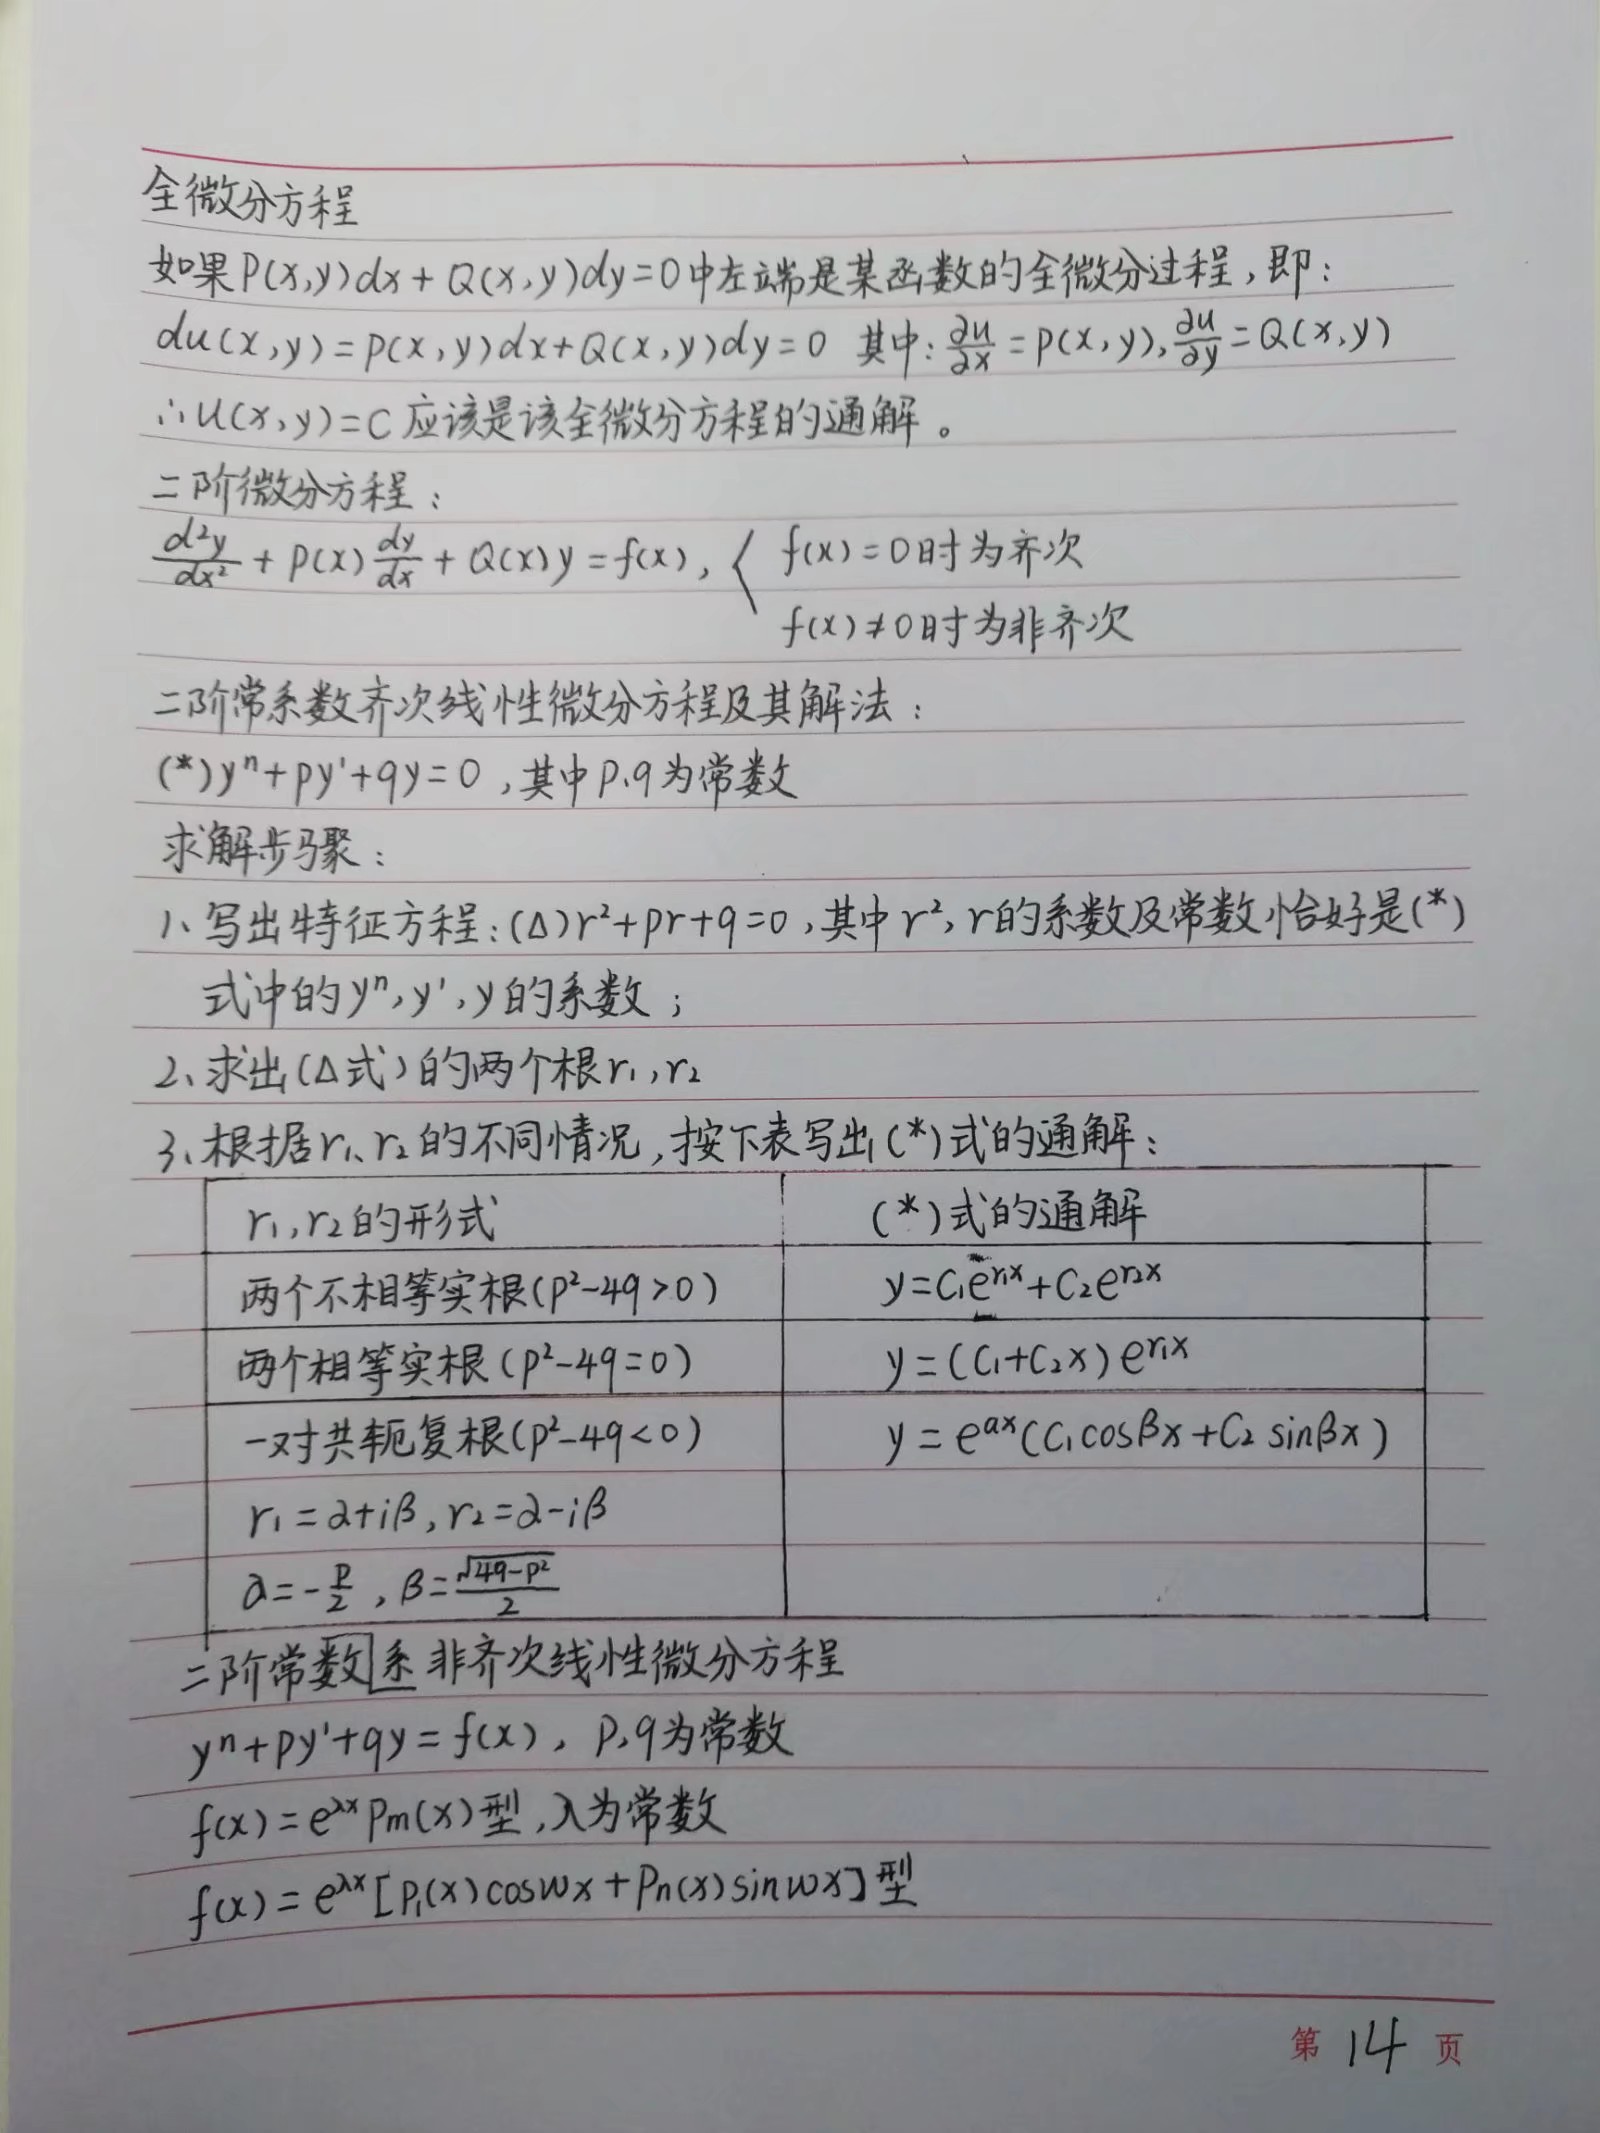 全微分方程
如果P(x,y)dx+Q(x,y)dy=0中左端是某函数的全微分过程,即:
du(x,y)=P(x,y)dx+Q(x,y)dy=0 其中:∂u/∂x=P(x,y),∂u/∂y=Q(x,y)
∴u(x,y)=C应该是该全微分方程的通解。
二阶微分方程:
d²y/dx²+P(x)dy/dx+Q(x)y=f(x),〈 f(x)=0时为齐次
f(x)≠0时为非齐次
二阶常系数齐次线性微分方程及其解法:
(*)yⁿ+py'+qy=0,其中p、q为常数
求解步骤:
1、写出特征方程:(Δ)r²+pr+q=0,其中r²,r的系数及常数恰好是(*)
式中的yⁿ,y',y的系数;
2、求出(Δ式)的两个根r₁,r₂
3、根据r₁、r₂的不同情况,按下表写出(*)式的通解:
r₁,r₂的形式 (*)式的通解
两个不相等实根(p²-4q>0) y=C₁e^r₁x+C₂e^r₂x
两个相等实根(p²-4q=0) y=(C₁+C₂x)e^r₁x
一对共轭复根(p²-4q<0) y=e^αx(C₁cosβx+C₂sinβx)
r₁=α+iβ,r₂=α-iβ
α=-p/2,β=√(4q-p²)/2
二阶常数系非齐次线性微分方程
yⁿ+py'+qy=f(x),p、q为常数
f(x)=e^λx Pm(x)型,λ为常数
f(x)=e^λx[Pₗ(x)cosωx+Pn(x)sinωx]型
第 14 页